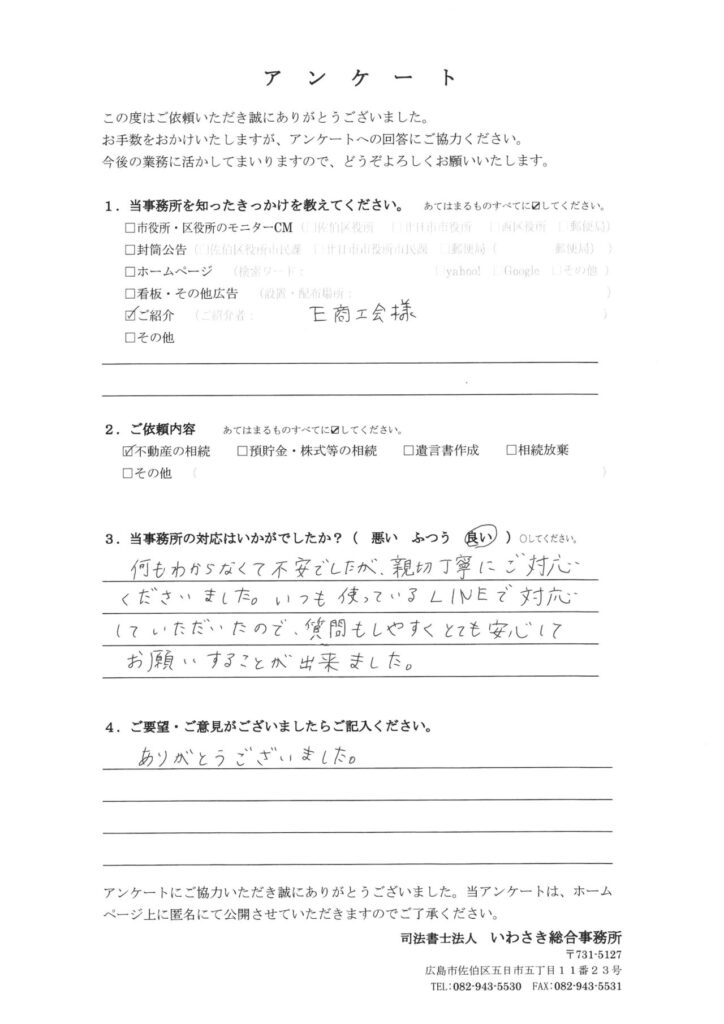 アンケート
この度はご依頼いただき誠にありがとうございました。
お手数をおかけいたしますが、アンケートへの回答にご協力ください。
今後の業務に活かしてまいりますので、どうぞよろしくお願いいたします。
1．当事務所を知ったきっかけを教えてください。 あてはまるものすべてに☑してください。
□市役所・区役所のモニターCM（□佐伯区役所 □廿日市市役所 □西区役所 □郵便局）
□封筒公告（□佐伯区役所市民課 □廿日市市役所市民課 □郵便局（ 郵便局））
□ホームページ （検索ワード： （□yahoo! □Google □その他 ）
□看板・その他広告 （設置・配布場所： ）
☑ご紹介 （ご紹介者： E商工会様 ）
□その他
2．ご依頼内容 あてはまるものすべてに☑してください。
☑不動産の相続 □預貯金・株式等の相続 □遺言書作成 □相続放棄
□その他 （ ）
3．当事務所の対応はいかがでしたか？（ 悪い ふつう 良い ）○してください。
何もわからなくて不安でしたが、親切丁寧にご対応
くださいました。いつも使っているLINEで対応
していただいたので、質問もしやすくとても安心して
お願いすることが出来ました。
4．ご要望・ご意見がございましたらご記入ください。
ありがとうございました。
アンケートにご協力いただき誠にありがとうございました。当アンケートは、ホーム
ページ上に匿名にて公開させていただきますのでご了承ください。
司法書士法人 いわさき総合事務所
〒731-5127
広島市佐伯区五日市五丁目１１番２３号
TEL:082-943-5530 FAX:082-943-5531